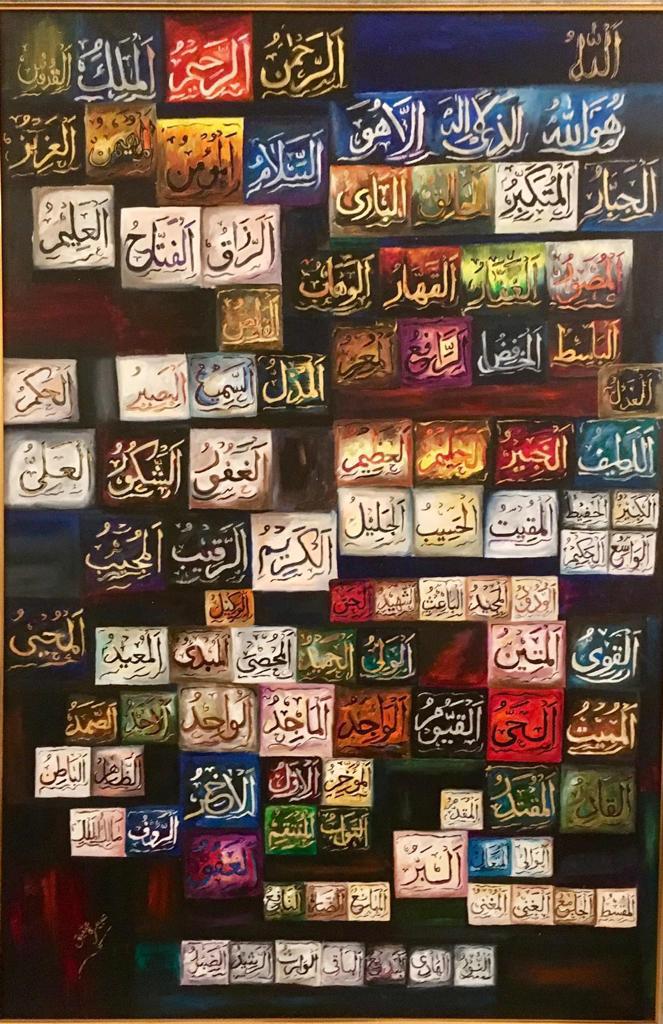 الله
هو الله الذي لا إله إلا هو
الرحمن الرحيم الملك القدوس
السلام المؤمن المهيمن العزيز
الجبار المتكبر الخالق البارئ
الرزاق الفتاح العليم
المصور الغفار القهار الوهاب
القابض
الباسط الخافض الرافع المعز
المذل السميع البصير الحكم
العدل
اللطيف الخبير الحليم العظيم
الغفور الشكور العلي
الكبير الحفيظ المقيت الحسيب الجليل
الواسع الحكيم
الكريم الرقيب المجيب
الودود المجيد الباعث الشهيد الحق
الوكيل
القوي المتين
الولي الحميد المحصي المبدئ المعيد المحيي
المميت الحي القيوم الواجد الماجد الواحد الاحد الصمد
القادر المقتدر المقدم
المؤخر الاول الآخر
الظاهر الباطن
الوالي المتعالي البر
التواب المنتقم العفو
الرؤوف مالك الملك
المقسط الجامع الغني المغني
المانع الضار النافع
النور الهادي البديع الباقي الوارث الرشيد الصبور